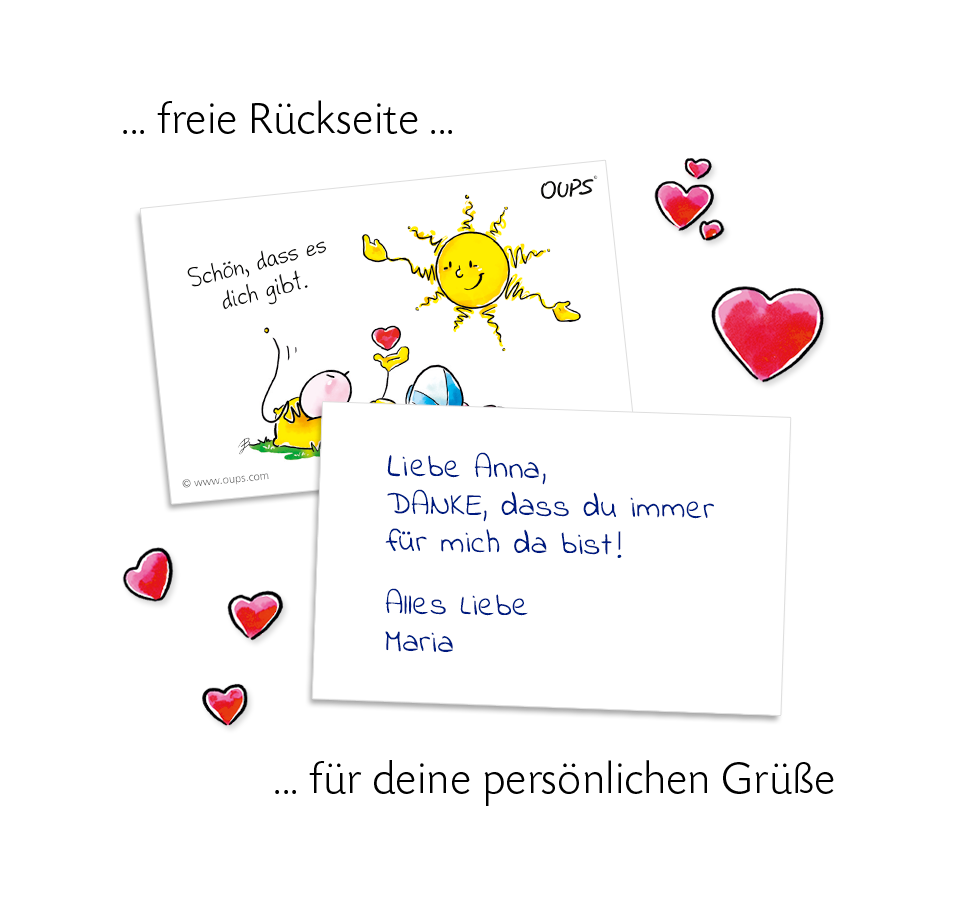 ... freie Rückseite ...
OUPS©
Schön, dass es
dich gibt.
© www.oups.com
Liebe Anna,
DANKE, dass du immer
für mich da bist!
Alles Liebe
Maria
... für deine persönlichen Grüße